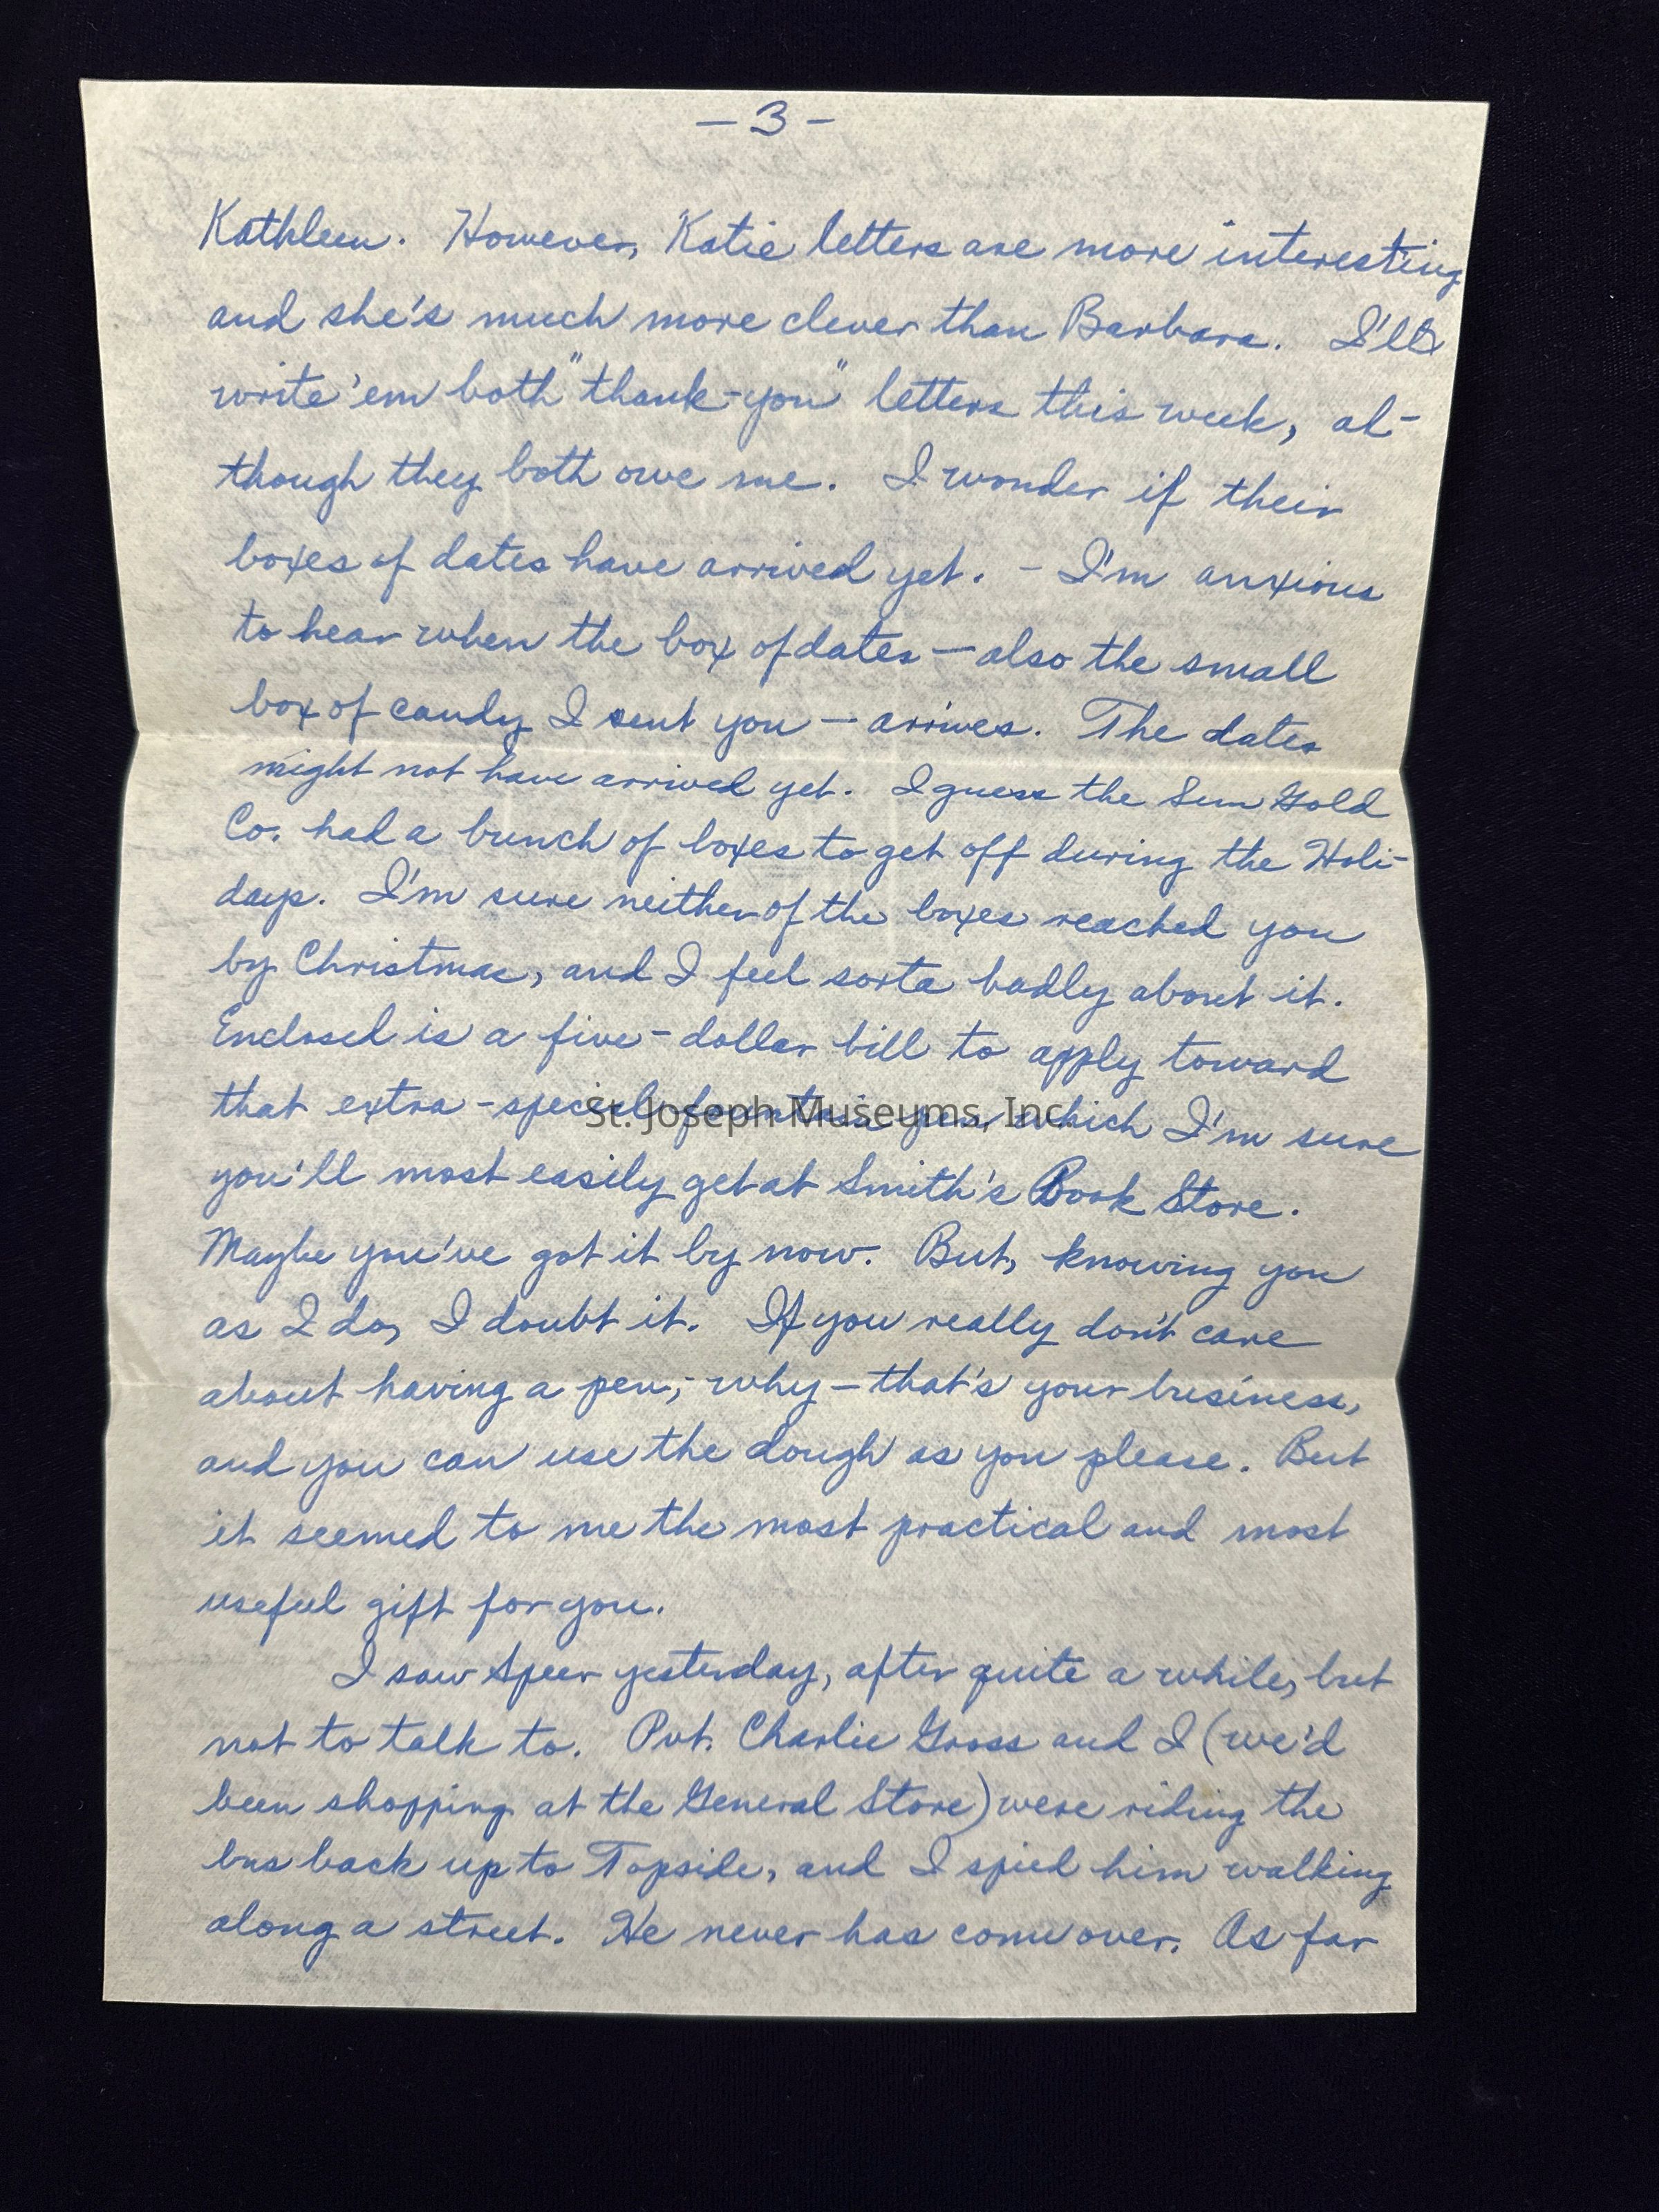 - 3 -
Kathleen. However, Katie letters are more interesting
and she's much more clever than Barbara. I'll
write 'em both "thank-you" letters this week, al-
though they both owe me. I wonder if their
boxes of dates have arrived yet. - I'm anxious
to hear when the box of dates — also the small
box of candy I sent you — arrives. The dates
might not have arrived yet. I guess the Sun Gold
Co. had a bunch of boxes to get off during the Holi-
days. I'm sure neither of the boxes reached you
by Christmas, and I feel sorta badly about it.
Enclosed is a five-dollar bill to apply toward
that extra-special fountain pen which I'm sure
St. Joseph Museums, Inc.
you'll most easily get at Smith's Book Store.
Maybe you've got it by now. But, knowing you
as I do, I doubt it. If you really don't care
about having a pen,- why — that's your business,
and you can use the dough as you please. But
it seemed to me the most practical and most
useful gift for you.
I saw Speer yesterday, after quite a while, but
not to talk to. Pvt. Charlie Gross and I (we'd
been shopping at the General Store) were riding the
bus back up to Topside, and I spied him walking
along a street. He never has come over. As far